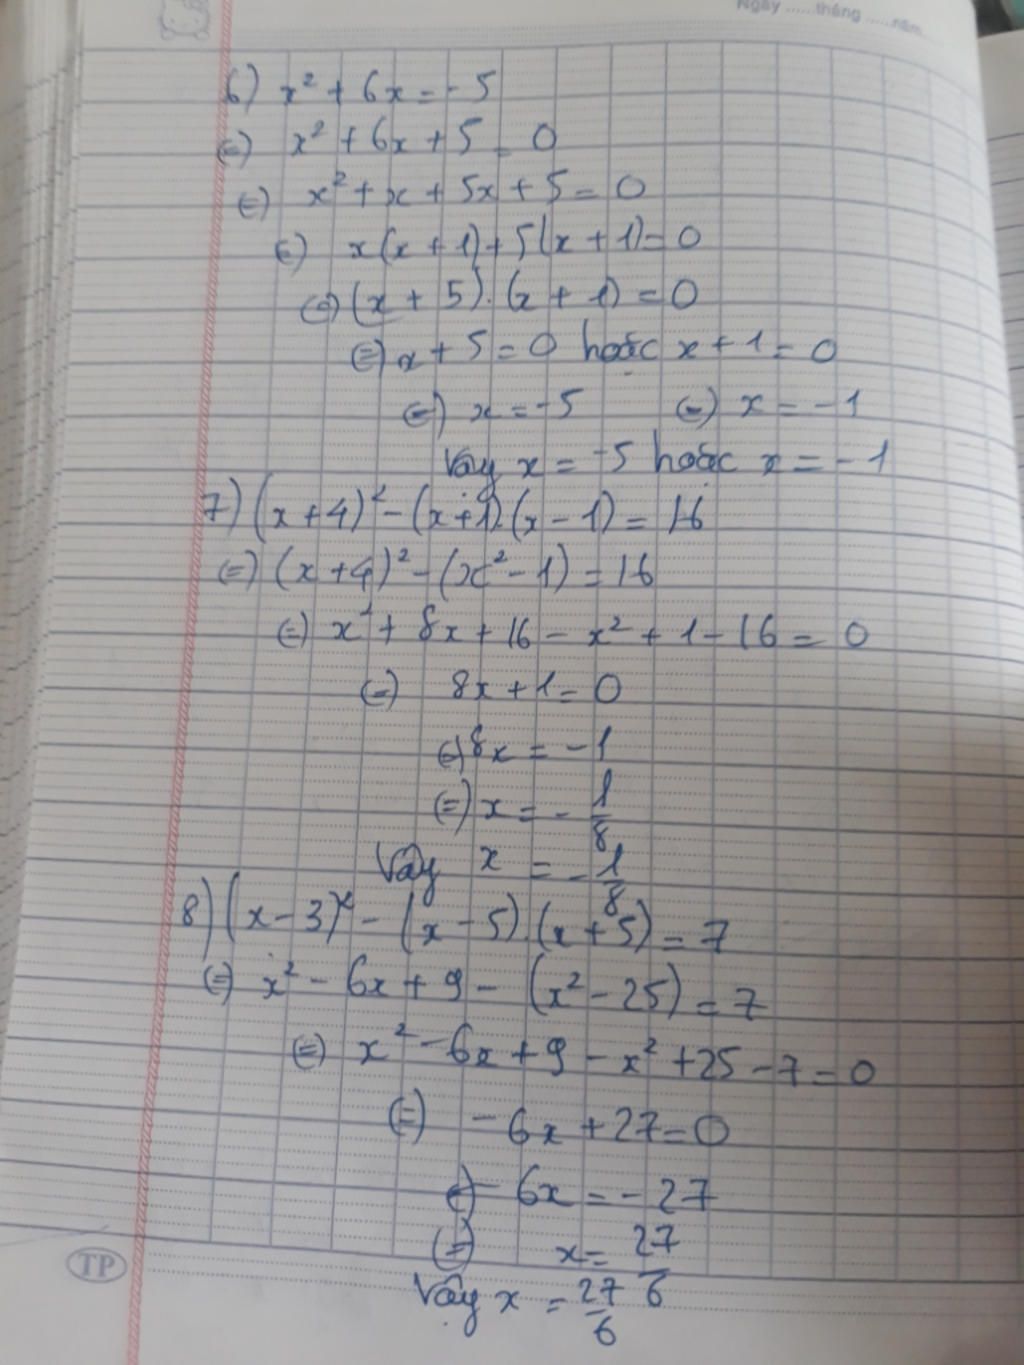 Ngày ......tháng ......năm....
6) x² + 6x = -5
(=) x² + 6x + 5 = 0
(=) x² + x + 5x + 5 = 0
(=) x(x + 1) + 5(x + 1) = 0
(=) (x + 5).(x + 1) = 0
(=) x + 5 = 0 hoặc x + 1 = 0
(=) x = -5 (=) x = -1
Vậy x = -5 hoặc x = -1
7) (x+4)² - (x+1).(x-1) = 16
(=) (x+4)² - (x²-1) = 16
(=) x² + 8x + 16 - x² + 1 - 16 = 0
(=) 8x + 1 = 0
(=) 8x = -1
(=) x = -1/8
Vậy x = -1/8
8) (x-3)² - (x-5).(x+5) = 7
(=) x² - 6x + 9 - (x² - 25) = 7
(=) x² - 6x + 9 - x² + 25 - 7 = 0
(=) -6x + 27 = 0
(=) -6x = -27
(=) x = 27/6
Vậy x = 27/6
TP